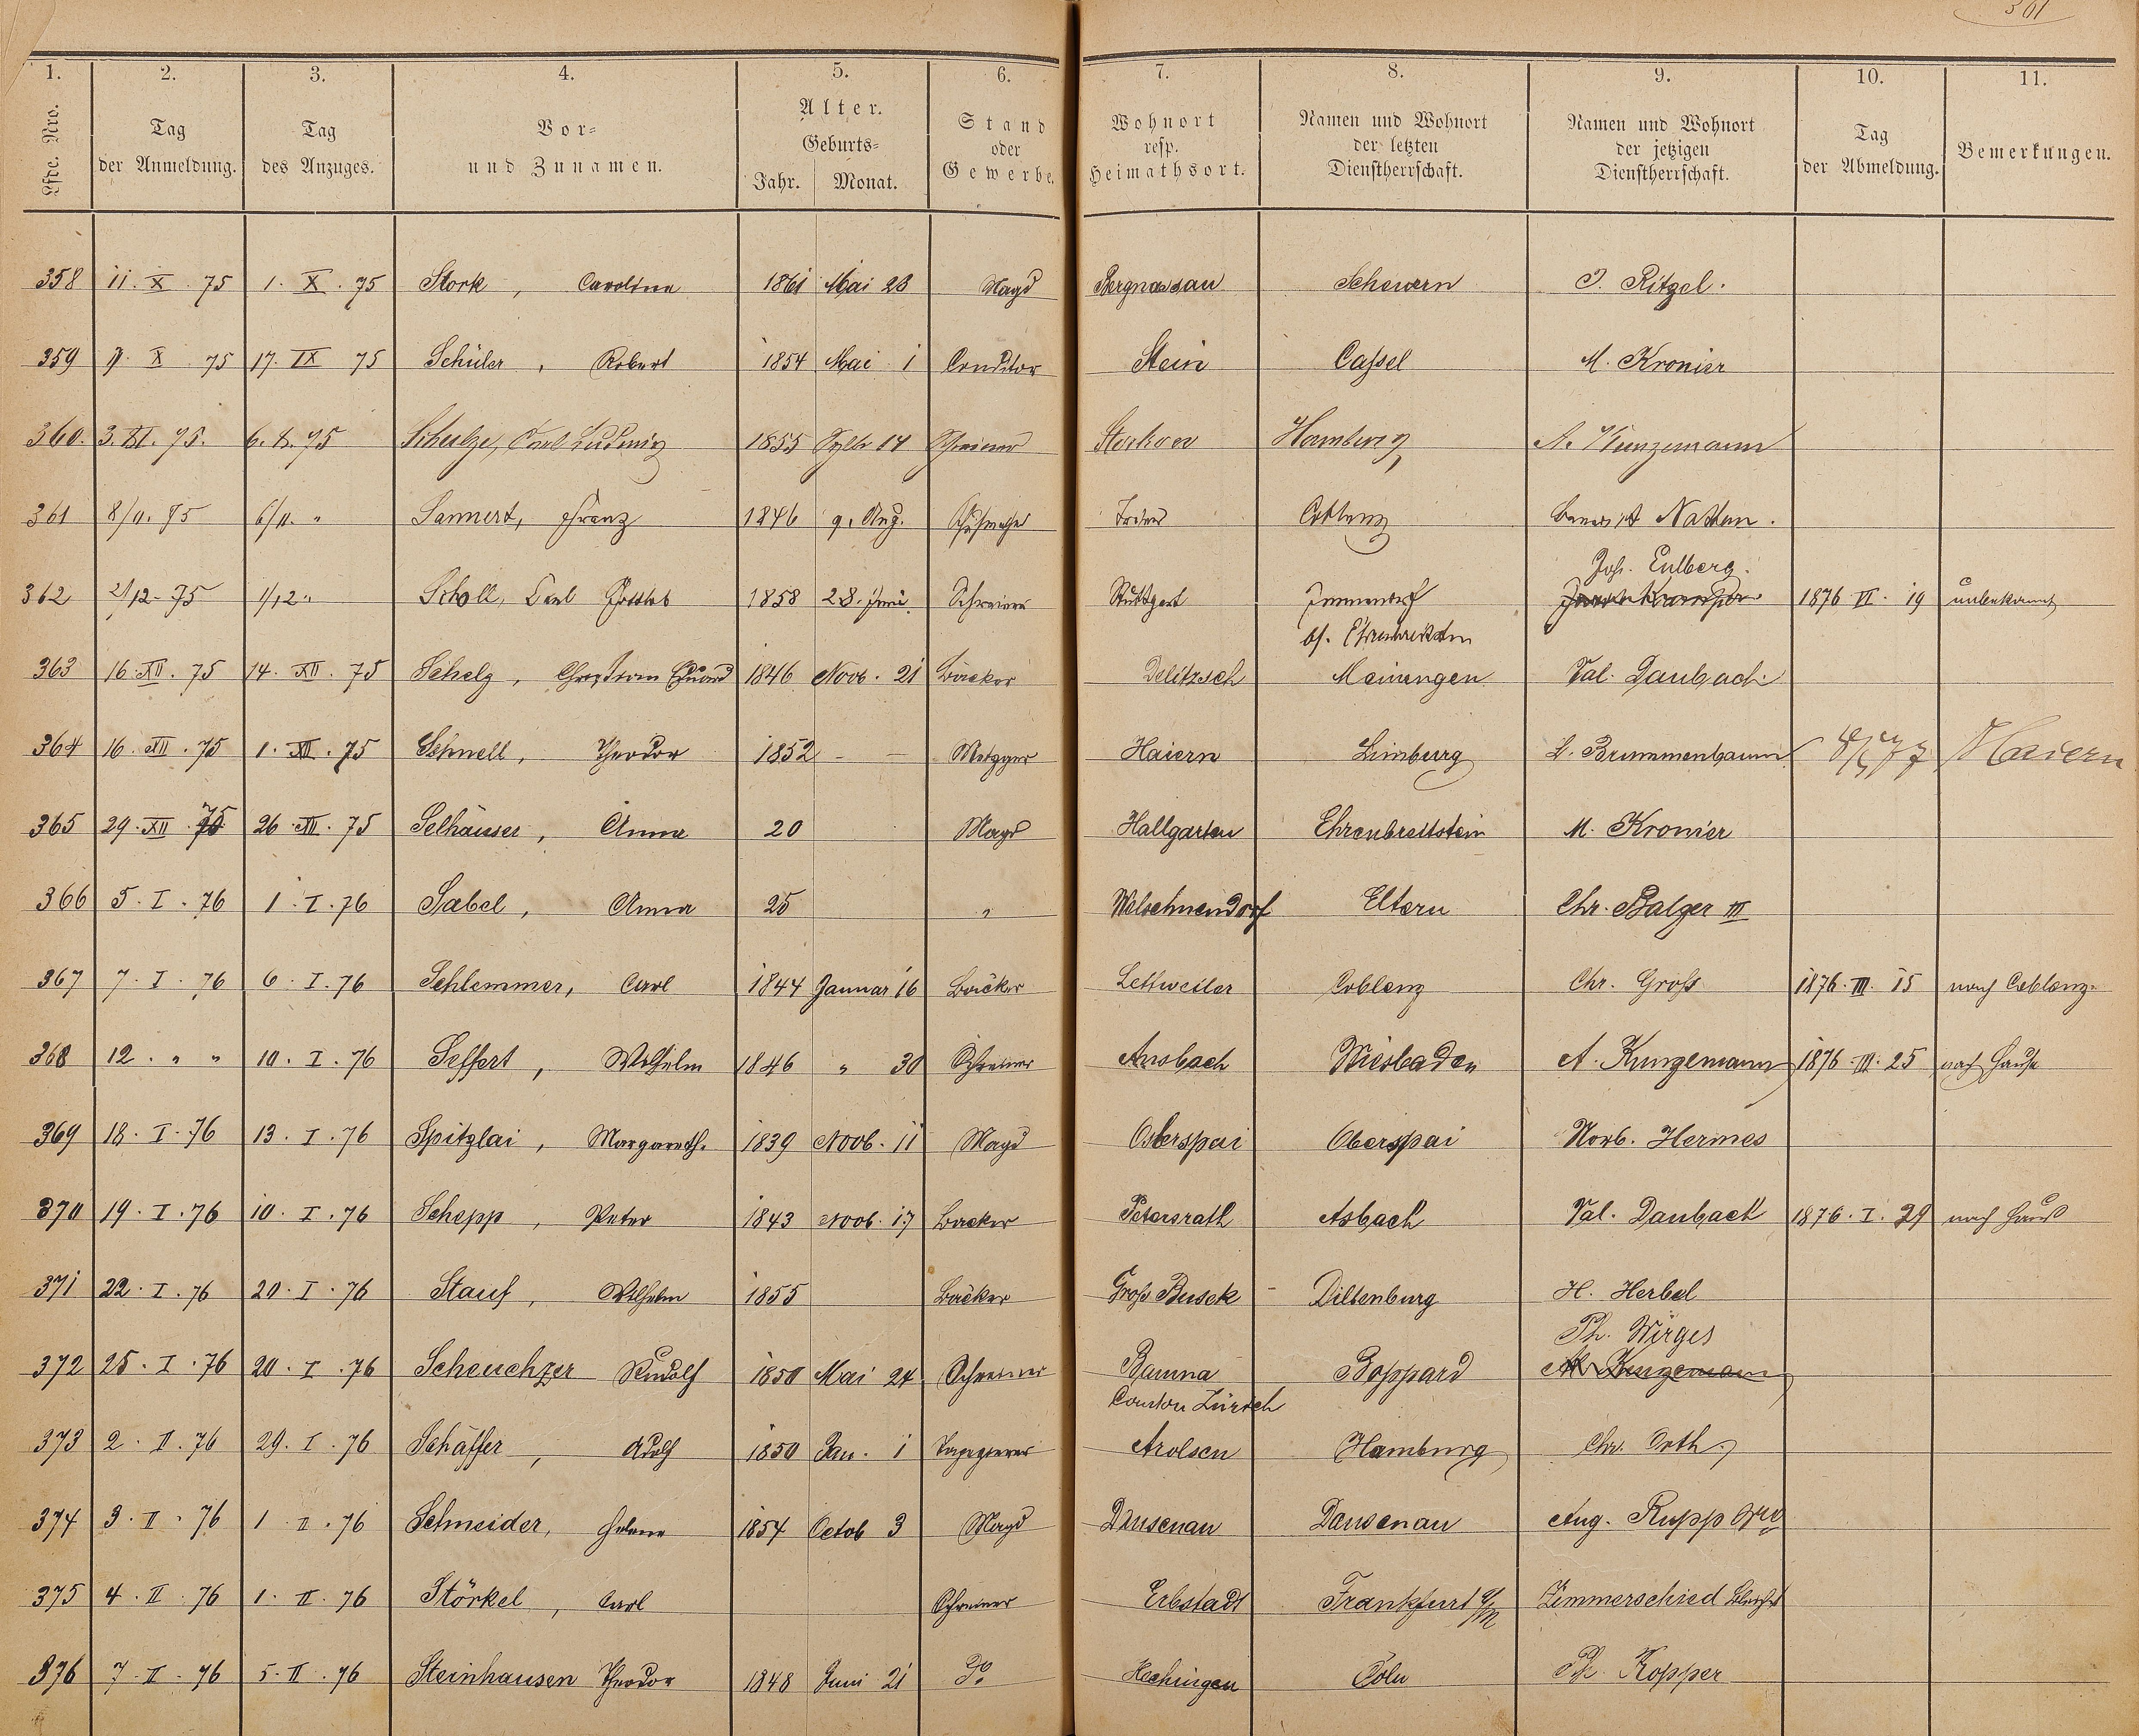 301
1. 2. 3. 4. 5. 6. 7. 8. 9. 10. 11.
Lfde. Nro. | Tag der Anmeldung. | Tag des Anzuges. | Vor- und Zunamen. | Alter. Geburts- Jahr. Monat. | Stand oder Gewerbe. | Wohnort resp. Heimathsort. | Namen und Wohnort der letzten Dienstherrschaft. | Namen und Wohnort der jetzigen Dienstherrschaft. | Tag der Abmeldung. | Bemerkungen.
358 11. X. 75 1. X. 75 Stork, Carolina 1861 Mai 23 Magd Bergnassau Scheuern J. Ritzel.
359 X 75 17. IX 75 Schüler, Robert 1854 Mai 1 Conditor Stein Cassel M. Kronier
360. 3. XI. 75. 6. X. 75 Schulze, Carl Ludwig 1855 14 Schreiner Storkow Hamburg A. Kunzemann
361 8/11. 75 6/11. " Sannert, Franz 1846 9. Aug. Trier Coblenz Nathan.
Joh. Eulberg.
362 2/12. 75 1/12 " Scholl, Carl Gottlob 1858 28. Juni. Schreiner Stuttgart Immendorf 1876 VI. 19 unbekannt
bf. Ehrenbreitstein
363 16. XII. 75 14. XII. 75 Schelz, Christian Eduard 1846 Novb. 21 Bäcker Delitzsch Meinungen Val. Daubach
364 16. XII. 75 1. XII. 75 Schnell, Theodor 1852 - - Metzger Haiern Limburg L. Brummenbaum 77 Haiern
365 29. XII. 75 26. XII. 75 Selhäuser, Anna 20 Magd Hallgarten Ehrenbreitstein M. Kronier
366 5. I. 76 1. I. 76 Sabel, Anna 25 " Welschneudorf Eltern Chr. Balzer III
367 7. I. 76 6. I. 76 Schlemmer, Carl 1844 Januar 16 Bäcker Lettweiler Coblenz Chr. Groß 1876. III. 15 nach Coblenz.
368 12. " " 10. I. 76 Seffert, Wilhelm 1846 " 30 Schreiner Ansbach Wiesbaden A. Kunzemann 1876. III. 25 nach Hause
369 18. I. 76 13. I. 76 Spitzlai, Margareth. 1839 Novb. 11 Magd Osterspai Oberspai Norb. Hermes
370 19. I. 76 10. I. 76 Schepp, Peter 1843 Novb. 17 Bäcker Petersrath Asbach Val. Daubach 1876. I. 29 nach Haus
371 22. I. 76 20. I. 76 Stauf, Wilhelm 1855 Bäcker Groß Busek - Dillenburg H. Herbel
Ph. Wirges
372 25. I. 76 20. I. 76 Scheuchzer Rudolf 1850 Mai 24 Schreiner Bauma Boppard A. Kunzemann
Canton Zürich
373 2. II. 76 29. I. 76 Schäffer, Adolf 1850 Jan. 1 Tapezierer Arolsen Hamburg Chr. Orth
374 3. II. 76 1. II. 76 Schneider, Helene 1854 Octob 3 Magd Dausenau Dausenau Aug. Rupp
375 4. II. 76 1. II. 76 Störkel, Carl Schreiner Erbstadt Frankfurt a/M Zimmerschied
376 7. II. 76 5. II. 76 Steinhausen Theodor 1848 Juni 21 do Hechingen Cöln Ph. Kopper